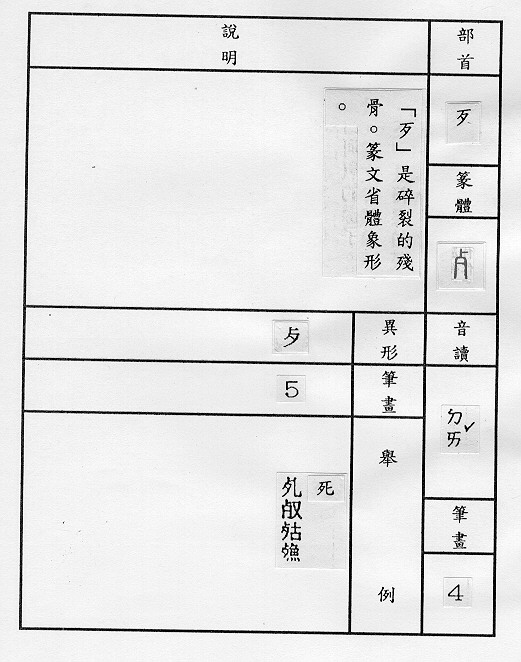 部首
歹
篆體
音讀
ㄉㄞˇ
筆畫
4
說明
「歹」是碎裂的殘
骨。篆文省體象形
。
異形
歺
筆畫
5
舉例
死